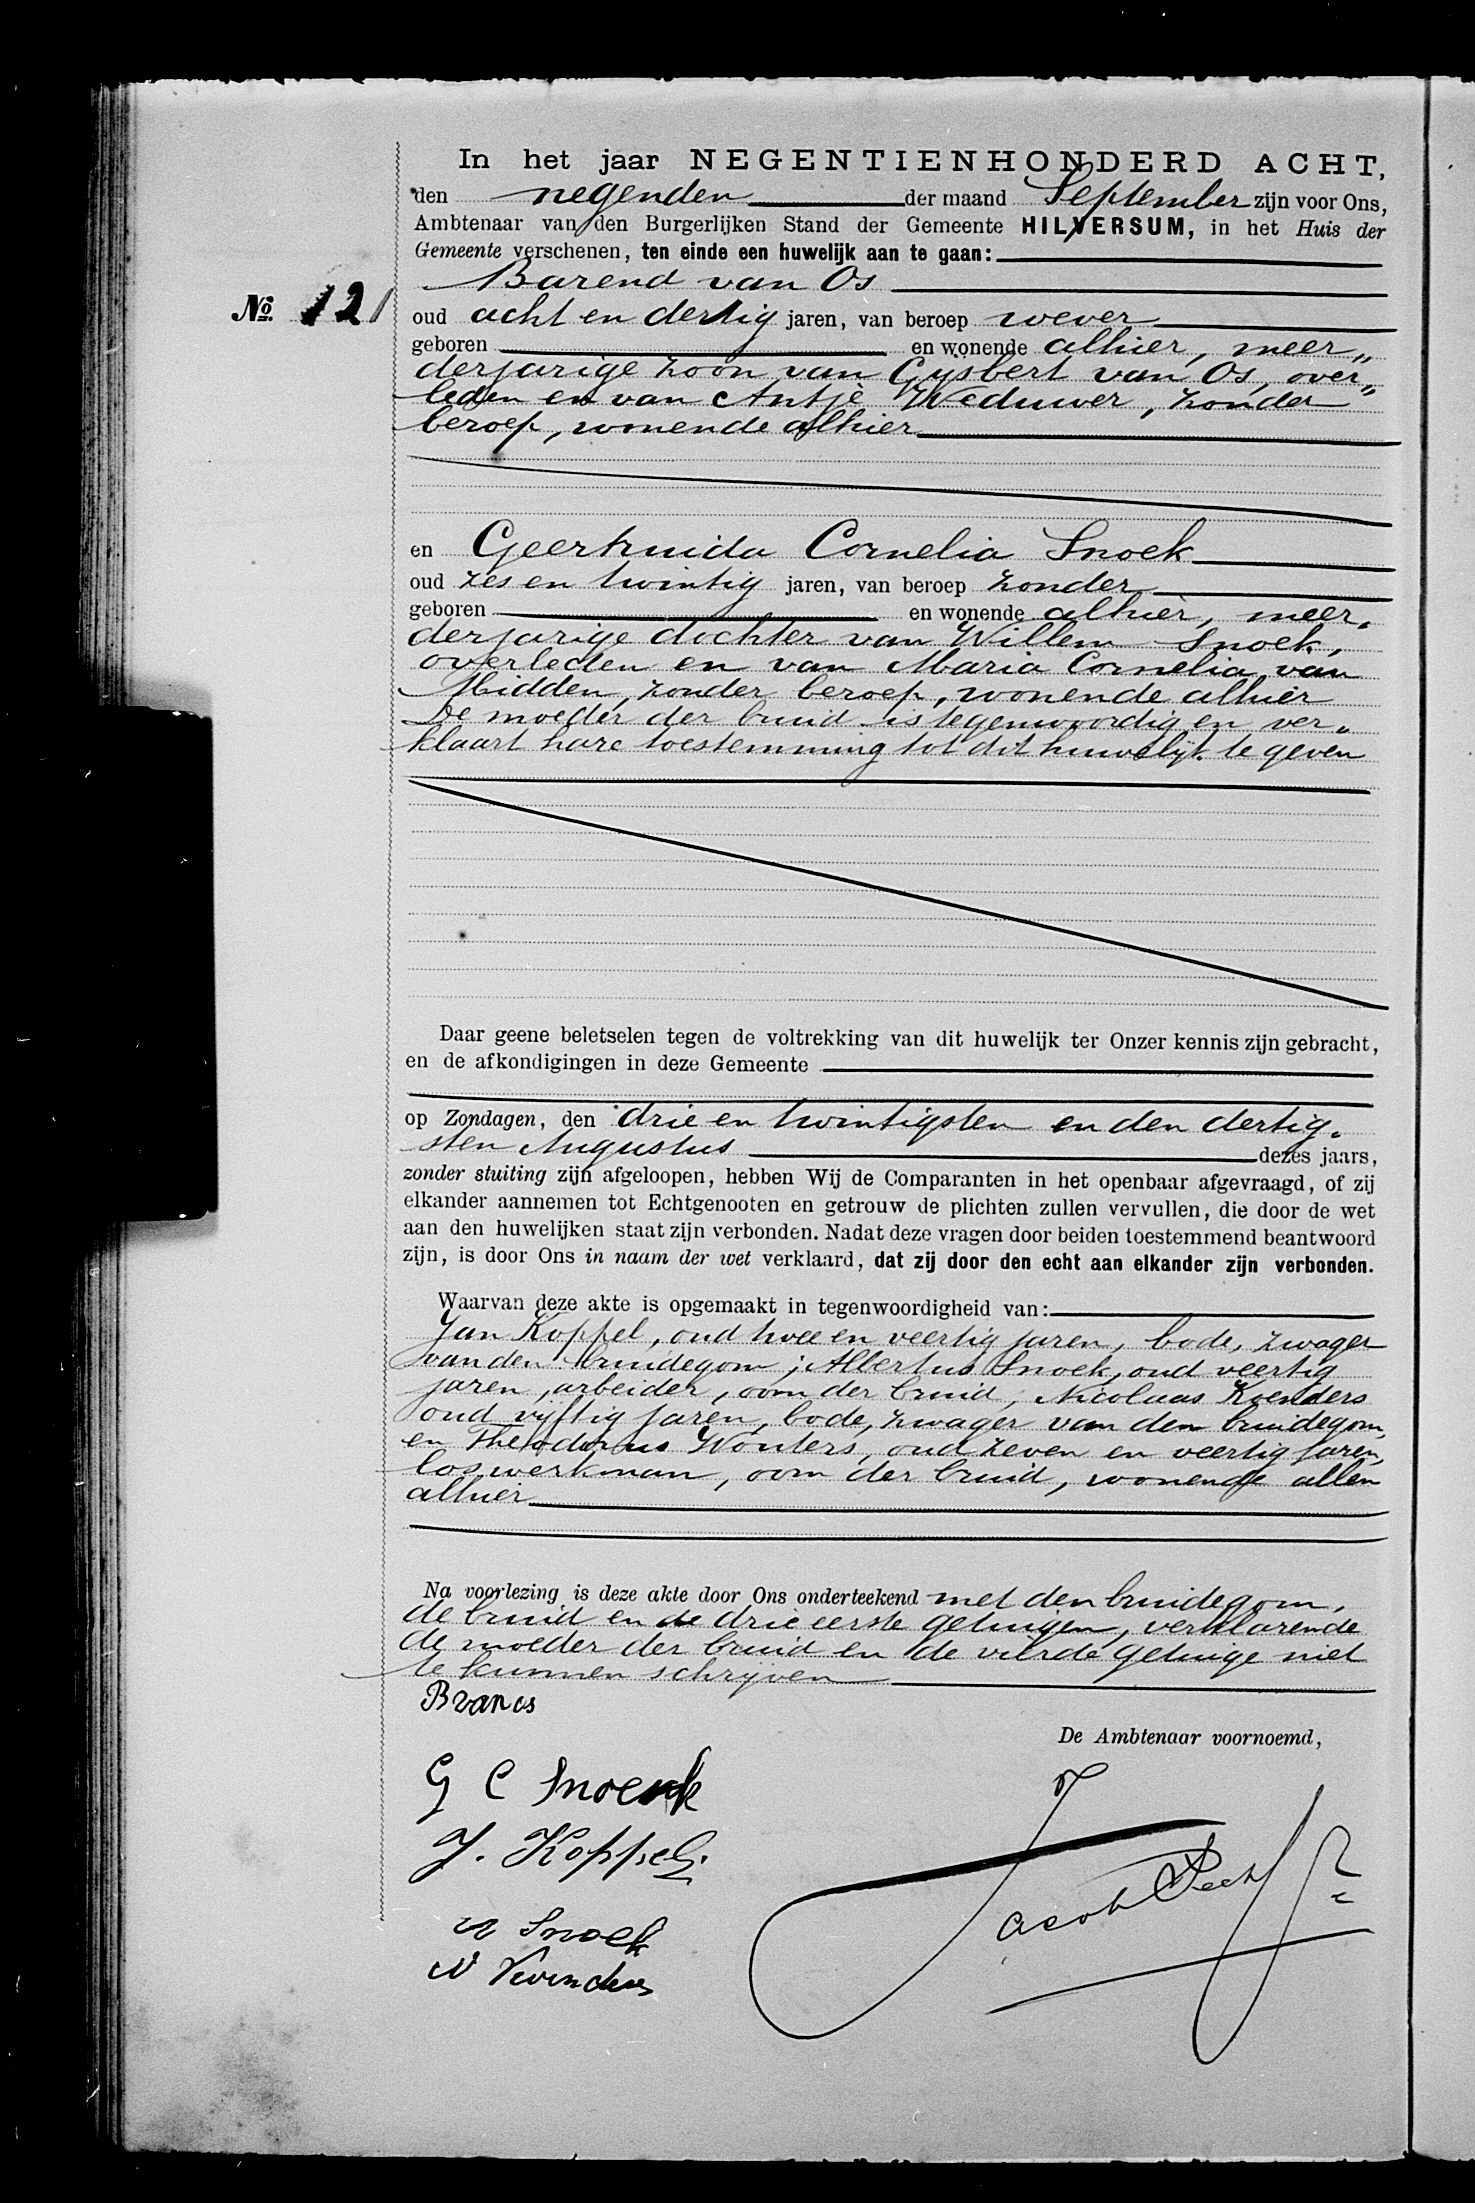 In het jaar NEGENTIENHONDERD ACHT,
den negenden der maand September zijn voor Ons,
Ambtenaar van den Burgerlijken Stand der Gemeente HILVERSUM, in het Huis der
Gemeente verschenen, ten einde een huwelijk aan te gaan:
Barend van Os
No 121
oud acht en dertig jaren, van beroep wever
geboren en wonende alhier, meer„
derjarige zoon van Gijsbert van Os, over„
leden en van Antje Weduwer, zonder
beroep, wonende alhier
en Geertruida Cornelia Snoek
oud zes en twintig jaren, van beroep zonder
geboren en wonende alhier, meer„
derjarige dochter van Willem Snoek,
overleden en van Maria Cornelia van
Midden, zonder beroep, wonende alhier
De moeder der bruid is tegenwoordig en ver„
klaart hare toestemming tot dit huwelijk te geven
Daar geene beletselen tegen de voltrekking van dit huwelijk ter Onzer kennis zijn gebracht,
en de afkondigingen in deze Gemeente
op Zondagen, den drie en twintigsten en den dertig„
sten Augustus dezes jaars,
zonder stuiting zijn afgeloopen, hebben Wij de Comparanten in het openbaar afgevraagd, of zij
elkander aannemen tot Echtgenooten en getrouw de plichten zullen vervullen, die door de wet
aan den huwelijken staat zijn verbonden. Nadat deze vragen door beiden toestemmend beantwoord
zijn, is door Ons in naam der wet verklaard, dat zij door den echt aan elkander zijn verbonden.
Waarvan deze akte is opgemaakt in tegenwoordigheid van:
Jan Koppel, oud twee en veertig jaren, bode, zwager
van den bruidegom; Albertus Snoek, oud veertig
jaren, arbeider, oom der bruid, Nicolaas
oud vijftig jaren, bode, zwager van den bruidegom,
en Theodorus Wouters, oud zeven en veertig jaren,
loswerkman, oom der bruid, wonende allen
alhier
Na voorlezing is deze akte door Ons onderteekend met den bruidegom,
de bruid en de drie eerste getuigen, verklarende
de moeder der bruid en de vierde getuige niet
te kunnen schrijven
B van os
De Ambtenaar voornoemd,
G C Snoek
J. Koppel
Snoek
N
Jacob